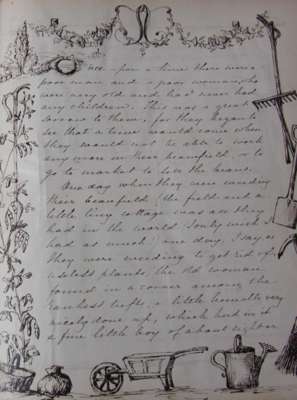 nce upon a time there was a
poor man and a poor woman, who
were very old and had never had
any children. This was a great
sorrow to them, for they began to
see that a time would come when
they would not be able to work
any more in their beanfield, or to
go to market to sell the beans.
One day when they were weeding
their beanfield (the field and a
little tiny cottage was all they
had in the world I only wish I
had as much) one day, I say, as
they were weeding to get rid of
useless plants, the old woman
found in a corner among the
rankest tufts, a little bundle very
nicely done up, which had in it
a fine little boy of about eighteen